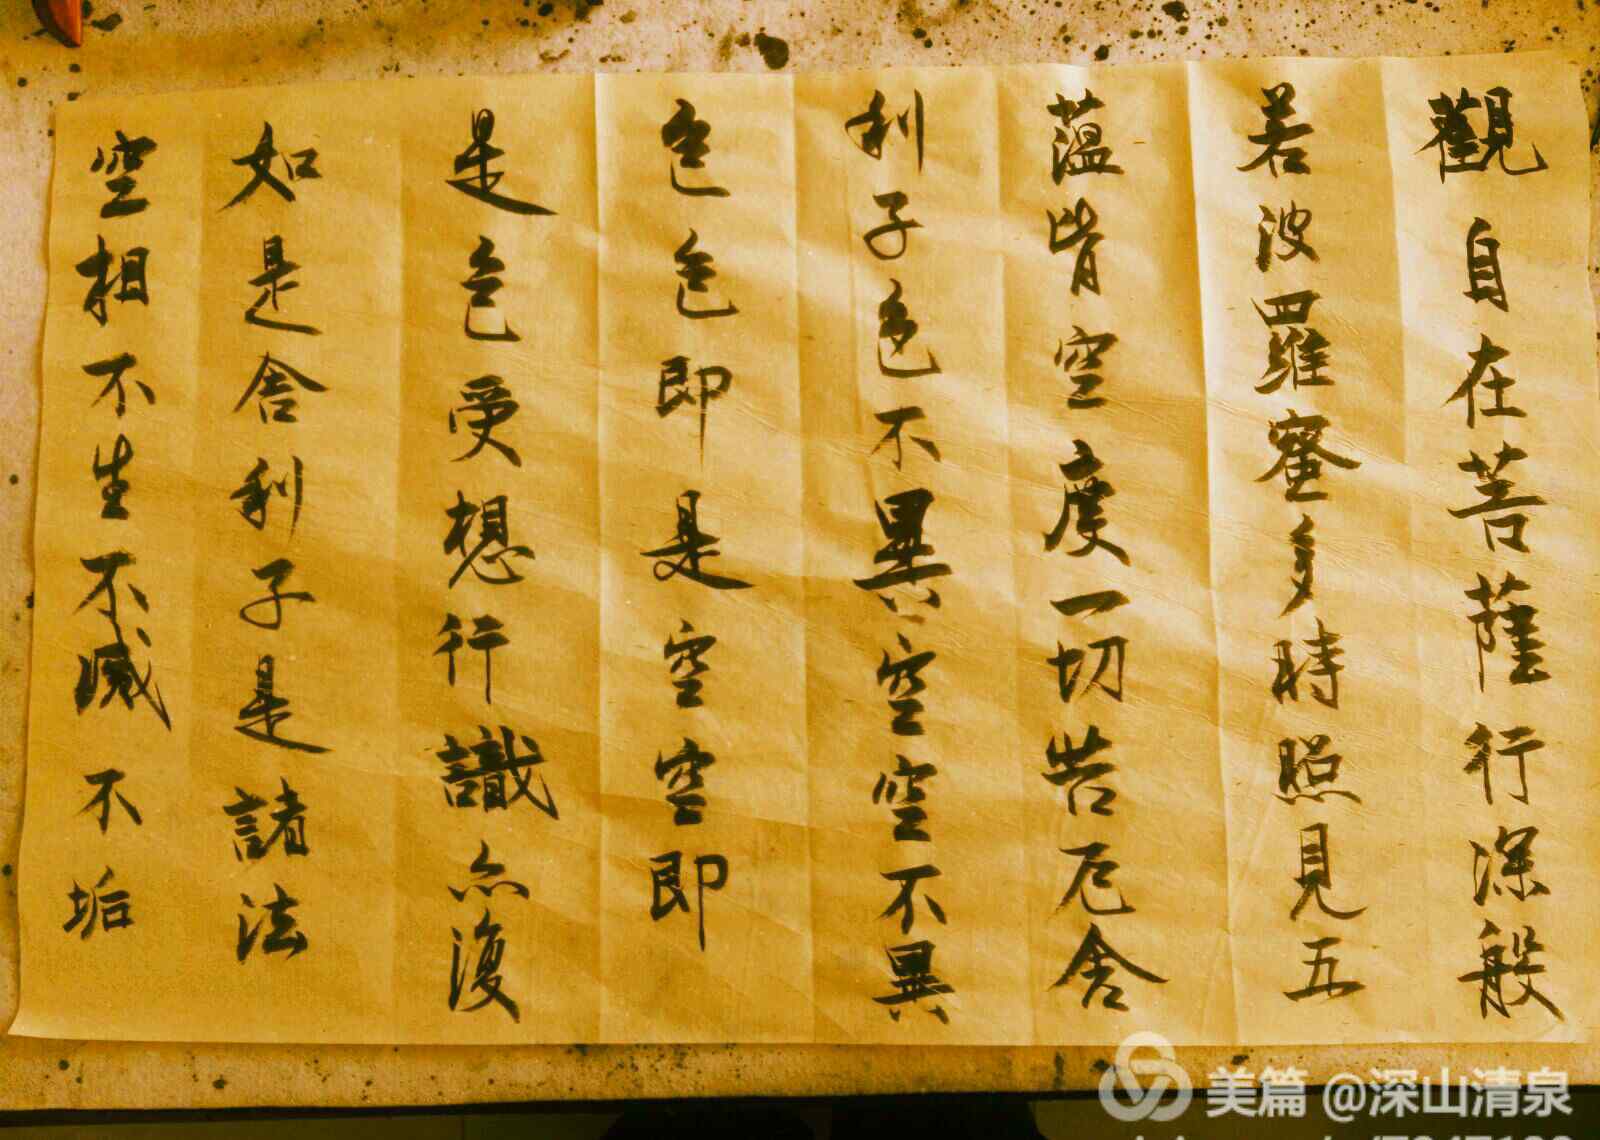 觀自在菩薩行深般
若波羅蜜多時照見五
蘊皆空度一切苦厄舍
利子色不異空空不異
色色即是空空即
是色受想行識亦復
如是舍利子是諸法
空相不生不滅不垢
美篇 @深山清泉